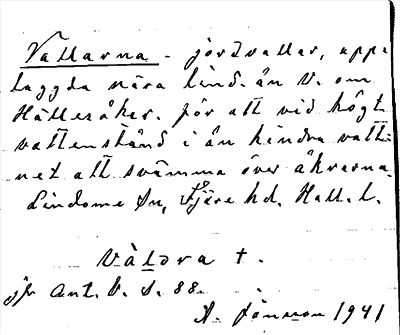 Vallarna - jordvallar, upp-
laggda nära Lind. ån V. om
Hällesåker. för att vid högt
vattenstånd i ån hindra vatt-
net att svämma över åkrarna.
Lindome Sn, Fjäre hd. Hall. l.
Vàldra +.
jfr Ant. b. s. 88.
A. Jönsson 1941